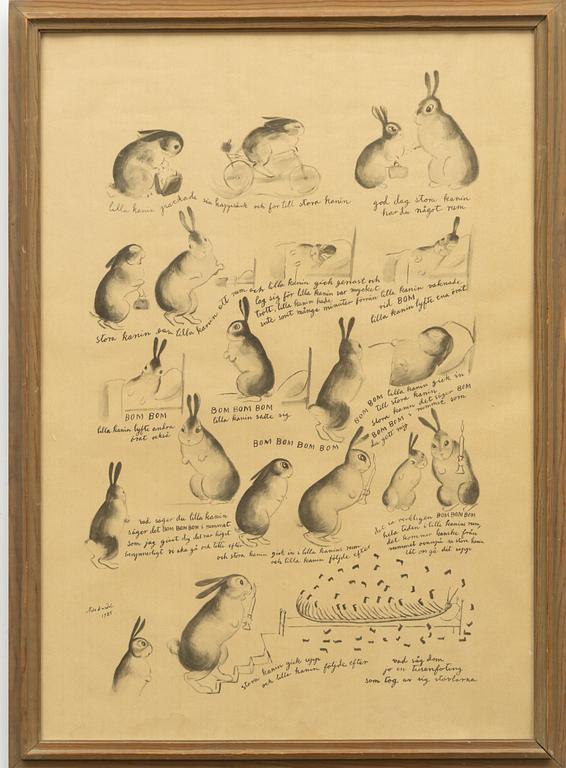 lilla kanin packade sin kappsäck och for till stora kanin
god dag stora kanin
har du något rum
stora kanin bar lilla kanin ett rum och lilla kanin gick genast och
lag sig för lilla kanin var mycket
trött. lilla kanin hade
inte sovit många minuter förrän lilla kanin vaknade
vid BOM
lilla kanin lyfte ena örat
BOM BOM
lilla kanin lyfte andra
örat också
BOM BOM BOM
lilla kanin satte sig
BOM BOM lilla kanin gick in
till stora kanin
stora kanin det säger BOM
BOM BOM i rummet som
du gett mig
BOM BOM BOM BOM
vad säger du lilla kanin
säger det BOM BOM BOM i rummet
som jag givit dig det var högst
besynnerligt vi ska gå och titta efter
och stora kanin gick in i lilla kanins rum
och lilla kanin följde efter
det sa verkligen BOM BOM BOM
hela tiden i lilla kanins rum,
det kommer kanske från
rummet ovanpå sa stora kanin
låt oss gå dit upp
1985
stora kanin gick upp
och lilla kanin följde efter
vad såg dom
jo en tusenfoting
som tog av sig stövlarna